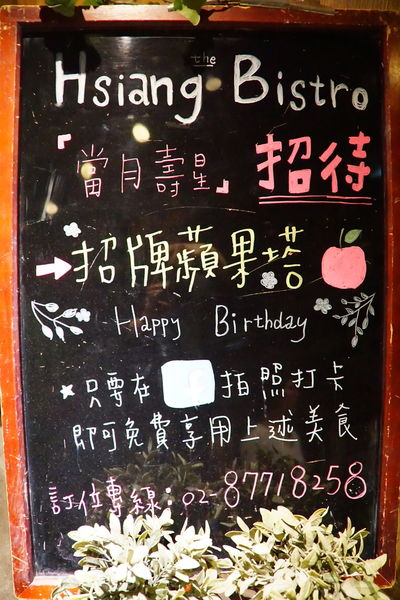 the
Hsiang Bistro
「當月壽星」招待
→招牌蘋果塔
Happy Birthday
★只要在 拍照打卡
即可免費享用上述美食
訂位專線:02-87718258